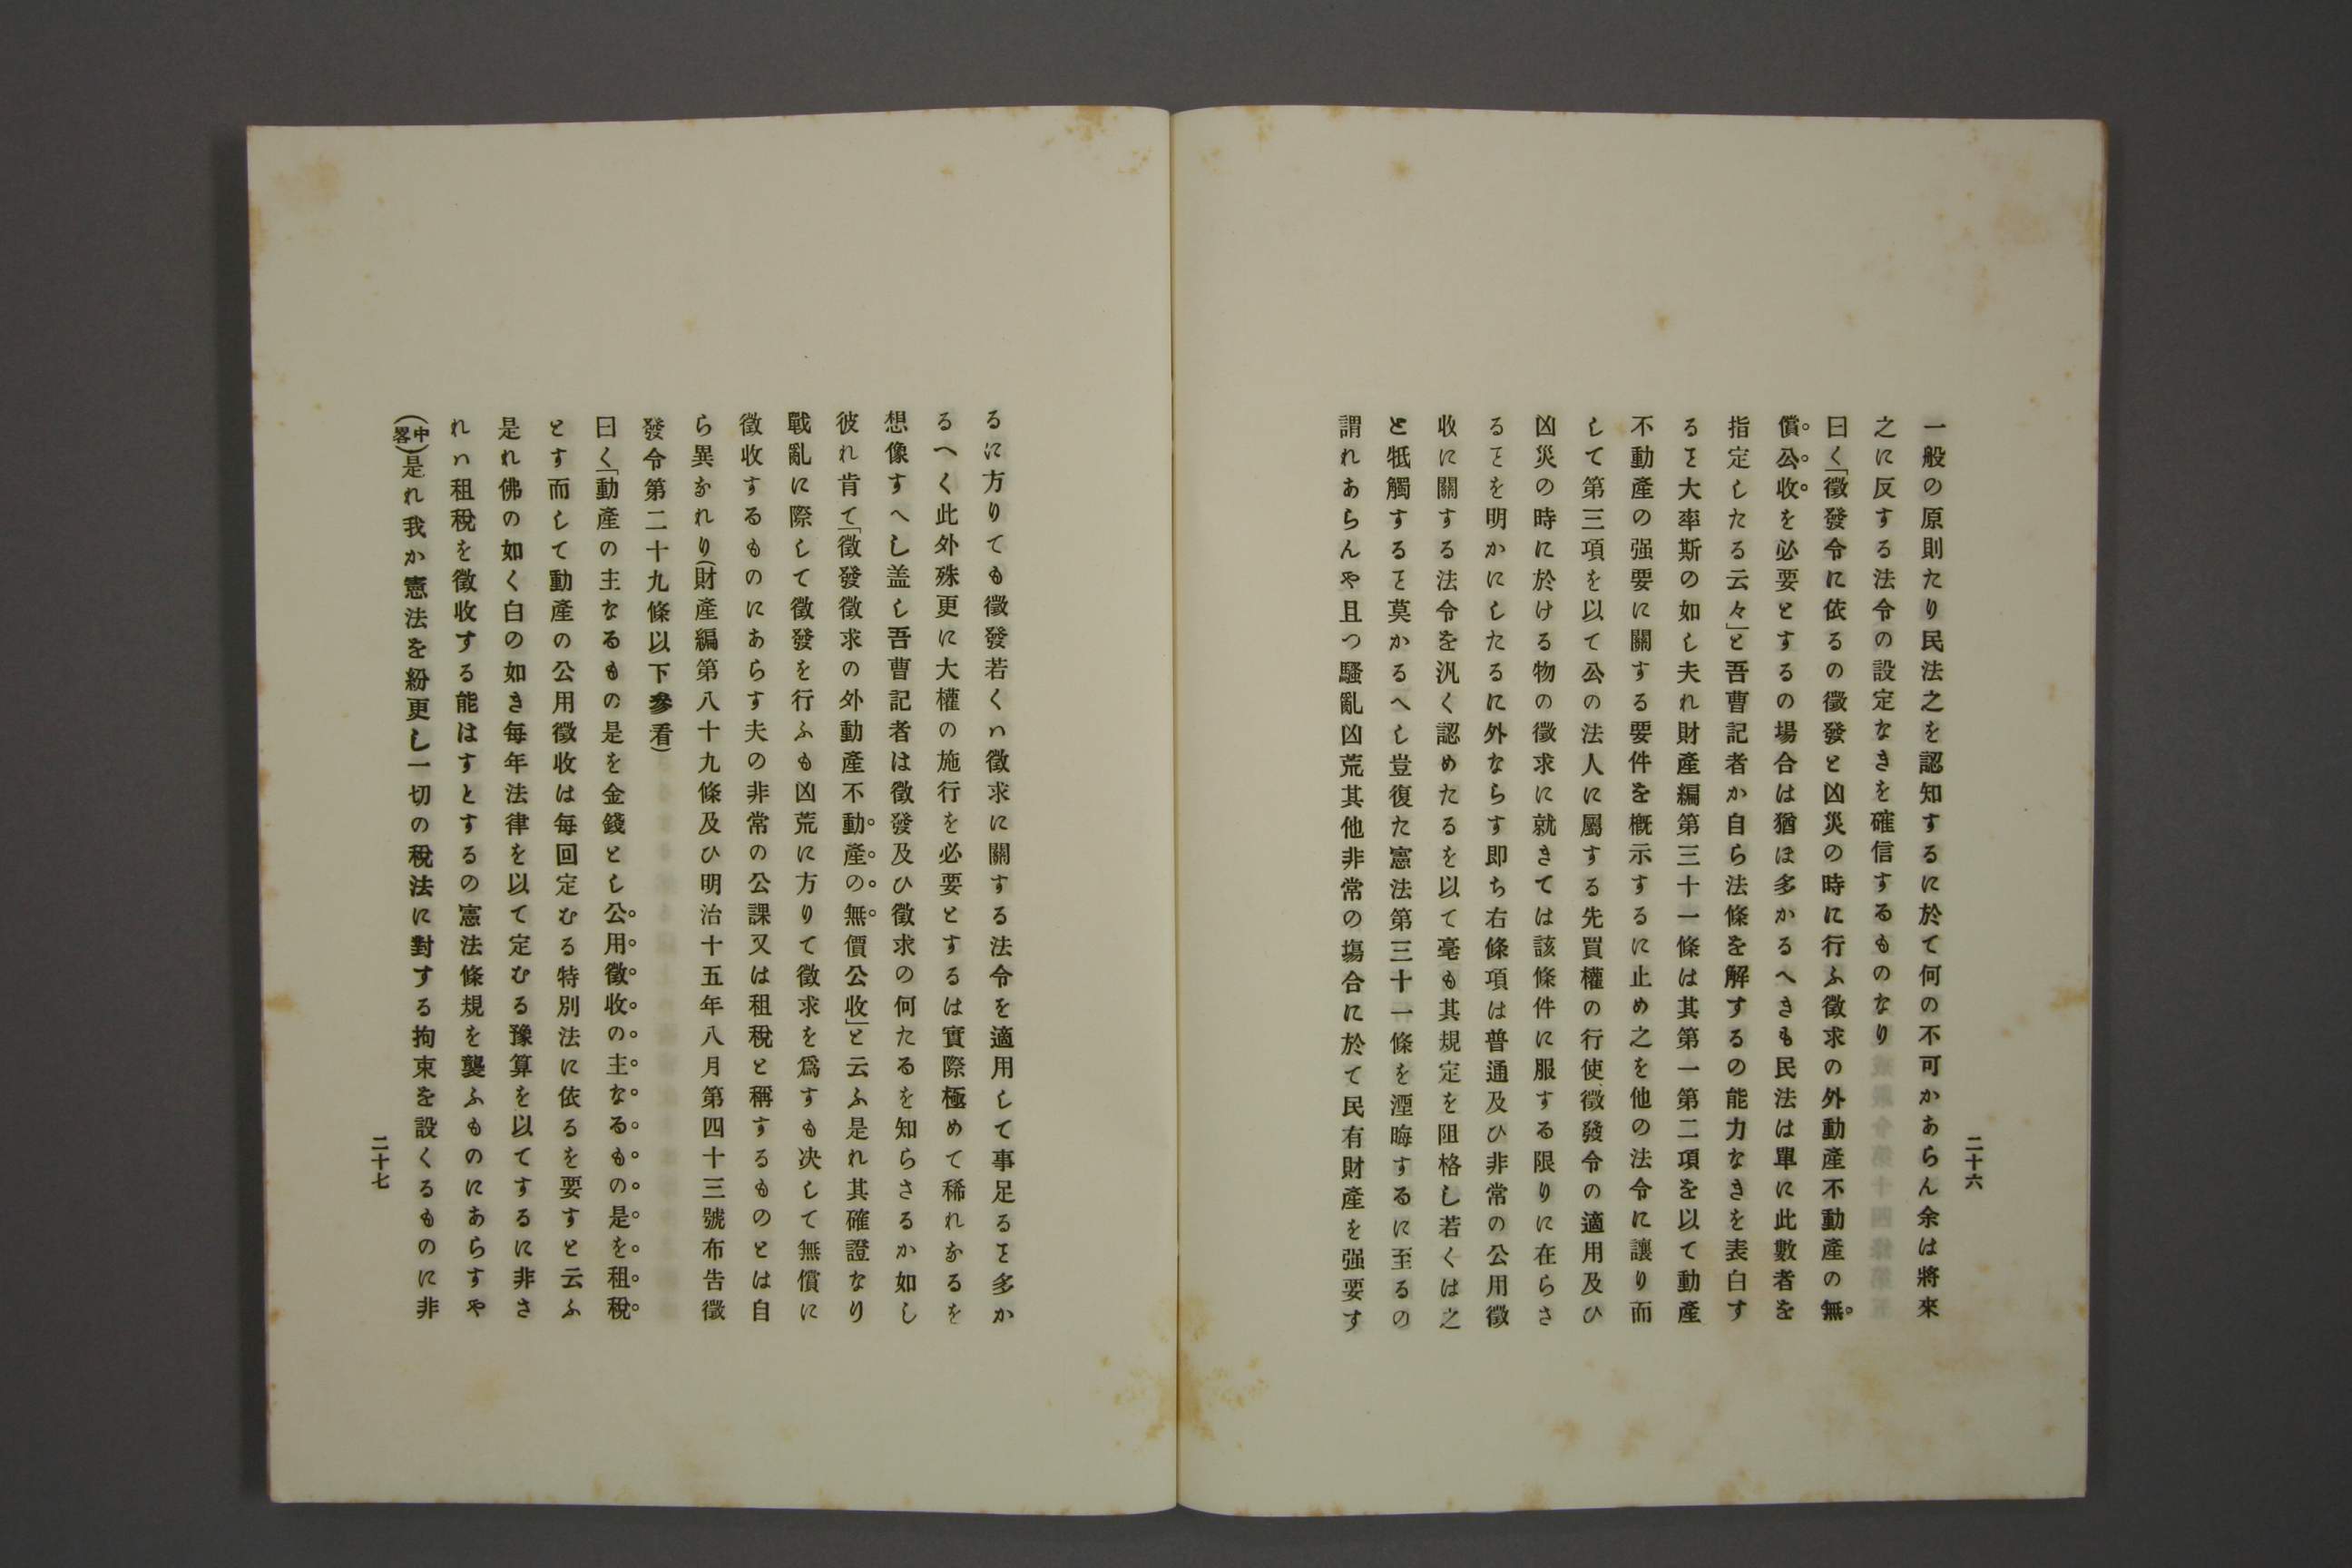 二十六
一般の原則たり民法之を認知するに於て何の不可かあらん余は將來
之に反する法令の設定なきを確信するものなり
曰く「徵發令に依るの徵發と凶災の時に行ふ徵求の外動產不動產の無
償公收を必要とするの場合は猶ほ多かるへきも民法は單に此數者を
指定したる云々」と吾曹記者か自ら法條を解するの能力なきを表白す
るヿ大率斯の如し夫れ財產編第三十一條は其第一第二項を以て動產
不動產の强要に關する要件を槪示するに止め之を他の法令に讓り而
して第三項を以て公の法人に屬する先買權の行使徵發令の適用及ひ
凶災の時に於ける物の徵求に就きては該條件に服する限りに在らさ
るヿを明かにしたるに外ならす即ち右條項は普通及ひ非常の公用徵
收に關する法令を汎く認めたるを以て毫も其規定を阻格し若くは之
と牴觸するヿ莫かるへし豈復た憲法第三十一條を湮晦するに至るの
謂れあらんや且つ騷亂凶荒其他非常の塲合に於て民有財產を强要す
るに方りても徵發若くハ徵求に關する法令を適用して事足るヿ多か
るへく此外殊更に大權の施行を必要とするは實際極めて稀れなるを
想像すへし盖し吾曹記者は徵發及ひ徵求の何たるを知らさるか如し
彼れ肯て「徵發徵求の外動產不動產の無價公收」と云ふ是れ其確證なり
戰亂に際して徵發を行ふも凶荒に方りて徵求を爲すも决して無償に
徵收するものにあらす夫の非常の公課又は租稅と稱するものとは自
ら異なれり(財產編第八十九條及ひ明治十五年八月第四十三號布告徵
發令第二十九條以下參看)
曰く「動產の主なるもの是を金錢とし公用徵收の主なるもの是を租稅
とす而して動產の公用徵收は每回定むる特別法に依るを要すと云ふ
是れ佛の如く白の如き每年法律を以て定むる豫算を以てするに非さ
れハ租稅を徵收する能はすとするの憲法條規を襲ふものにあらすや
(中畧)是れ我か憲法を紛更し一切の稅法に對する拘束を設くるものに非
二十七